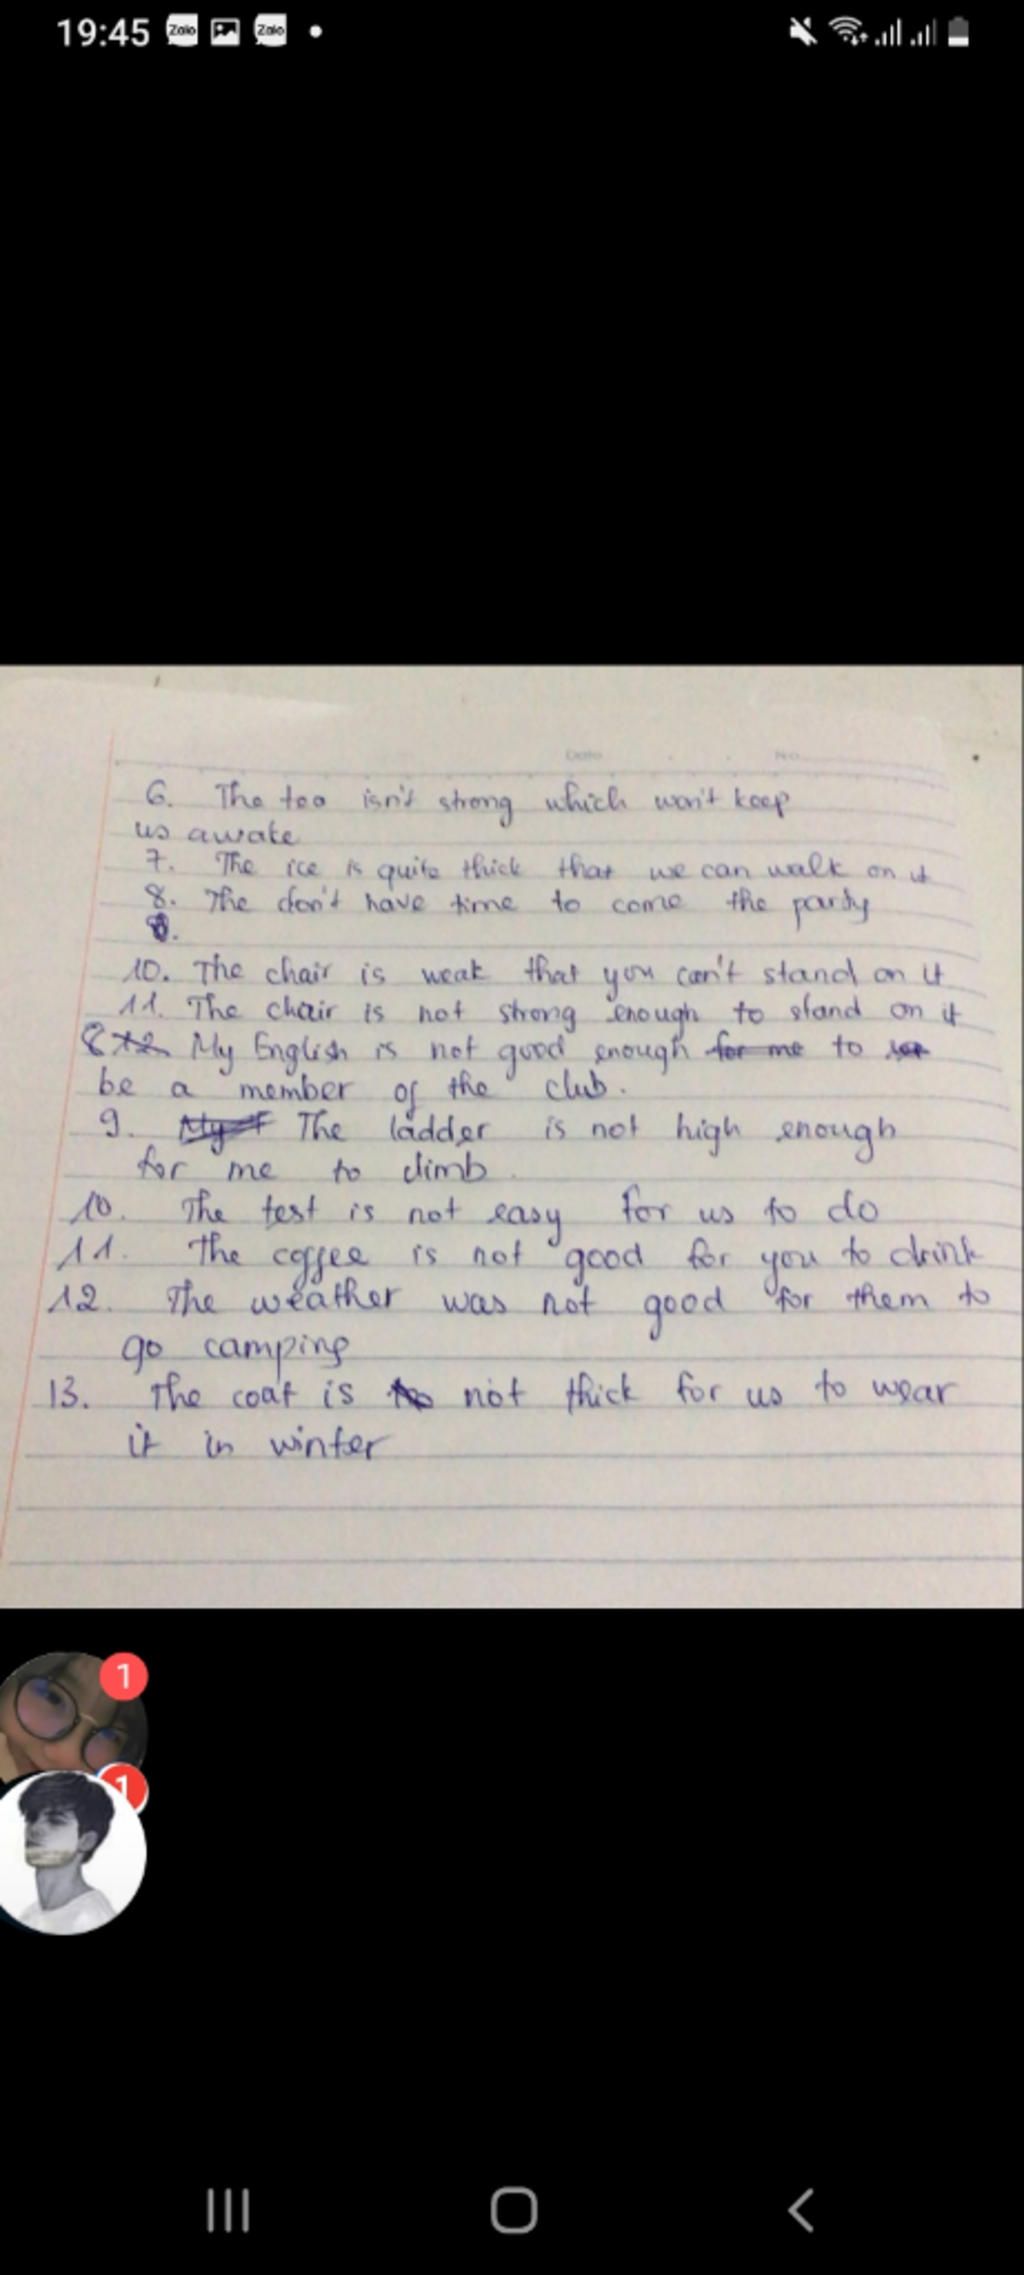 19:45 Zalo Zalo
Date No.
6. The tea isn't strong which won't keep
us awake
7. The ice is quite thick that we can walk on it
8. The don't have time to come the party
8.
10. The chair is weak that you can't stand on it
11. The chair is not strong enough to stand on it
8 My English is not good enough for me to
be a member of the club.
9. My The ladder is not high enough
for me to climb.
10. The test is not easy for us to do
11. The coffee is not good for you to drink
12. The weather was not good for them to
go camping
13. The coat is not thick for us to wear
it in winter
1
1